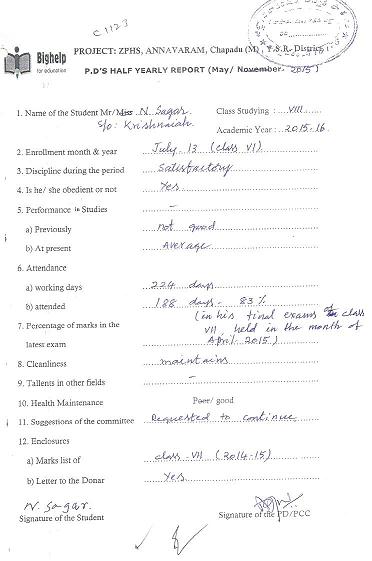 C1123
Bighelp
for education
PROJECT: ZPHS, ANNAVARAM, Chapadu (M), Y.S.R. District
P.D'S HALF YEARLY REPORT (May/ November- 2015)
1. Name of the Student Mr/Miss N. Sagar Class Studying : VIII
S/o: Krishnaiah
Academic Year : 2015-16
2. Enrollment month & year July. 13 (class VI)
3. Discipline during the period Satisfactory
4. Is he/ she obedient or not Yes
5. Performance in Studies –
a) Previously not good
b) At present Average
6. Attendance
a) working days 224 days
b) attended 188 days - 83%
(in his final exams of class
7. Percentage of marks in the VII, held in the month of
latest exam April 2015)
8. Cleanliness maintains
9. Tallents in other fields –
10. Health Maintenance Poor/ good
11. Suggestions of the committee Requested to continue
12. Enclosures
a) Marks list of class-VII (2014-15)
b) Letter to the Donar Yes
N. Sagar.
Signature of the Student
Signature of the PD/PCC